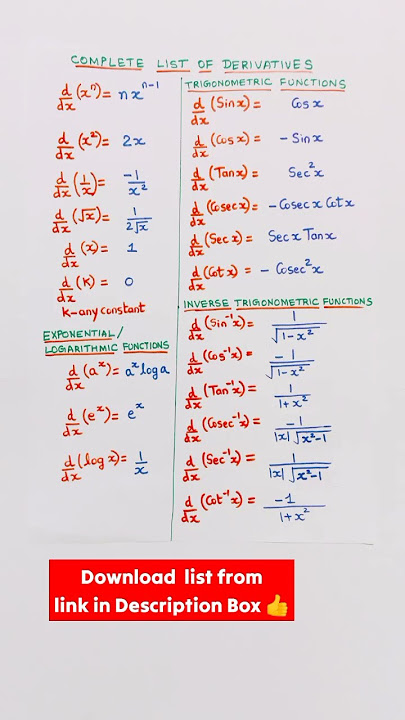 COMPLETE LIST OF DERIVATIVES
d/dx (xⁿ) = nxⁿ⁻¹
d/dx (x²) = 2x
d/dx (1/x) = -1/x²
d/dx (√x) = 1/2√x
d/dx (x) = 1
d/dx (K) = 0
K-any constant
EXPONENTIAL/
LOGARITHMIC FUNCTIONS
d/dx (aˣ) = aˣ log a
d/dx (eˣ) = eˣ
d/dx (log x) = 1/x
TRIGONOMETRIC FUNCTIONS
d/dx (Sin x) = Cos x
d/dx (Cos x) = - Sin x
d/dx (Tan x) = Sec²x
d/dx (Cosec x) = - Cosec x Cot x
d/dx (Sec x) = Sec x Tan x
d/dx (Cot x) = - Cosec²x
INVERSE TRIGONOMETRIC FUNCTIONS
d/dx (Sin⁻¹x) = 1/√(1-x²)
d/dx (Cos⁻¹x) = -1/√(1-x²)
d/dx (Tan⁻¹x) = 1/(1+x²)
d/dx (Cosec⁻¹x) = -1/(|x|√(x²-1))
d/dx (Sec⁻¹x) = 1/(|x|√(x²-1))
d/dx (Cot⁻¹x) = -1/(1+x²)
Download list from
link in Description Box 👍